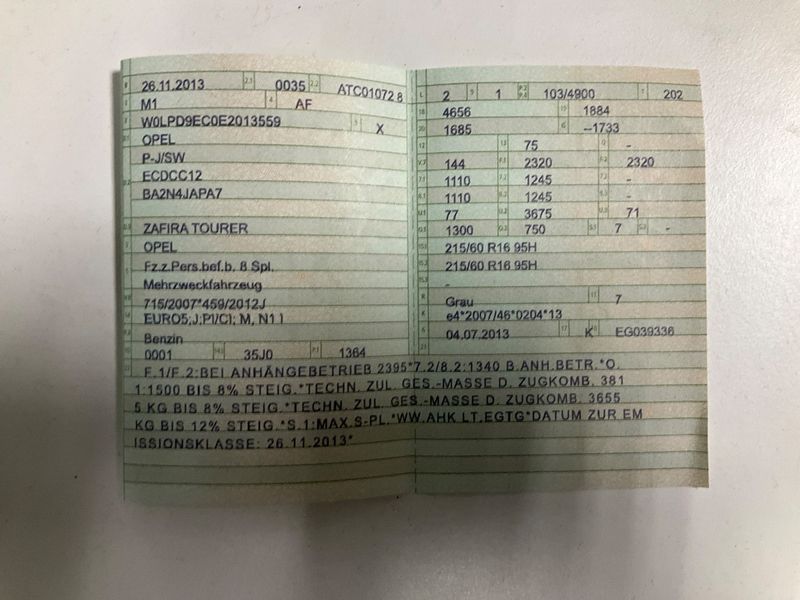 26.11.2013 0035 ATC01072 8
M1 AF
W0LPD9EC0E2013559 X
OPEL
P-J/SW
ECDCC12
BA2N4JAPA7
ZAFIRA TOURER
OPEL
Fz.z.Pers.bef.b. 8 Spl.
Mehrzweckfahrzeug
715/2007*459/2012J
EURO5;J;PI/CI; M, N1 I
Benzin
0001 35J0 1364
2 1 103/4900 202
4656 1884
1685 --1733
75 -
144 2320 2320
1110 1245 -
1110 1245 -
77 3675 71
1300 750 7 -
215/60 R16 95H
215/60 R16 95H
-
Grau 7
e4*2007/46*0204*13
04.07.2013 K EG039336
F.1/F.2:BEI ANHÄNGEBETRIEB 2395*7.2/8.2:1340 B.ANH.BETR.*O.
1:1500 BIS 8% STEIG.*TECHN. ZUL. GES.-MASSE D. ZUGKOMB. 381
5 KG BIS 8% STEIG.*TECHN. ZUL. GES.-MASSE D. ZUGKOMB. 3655
KG BIS 12% STEIG.*S.1:MAX.S-PL.*WW.AHK LT.EGTG*DATUM ZUR EM
ISSIONSKLASSE: 26.11.2013*